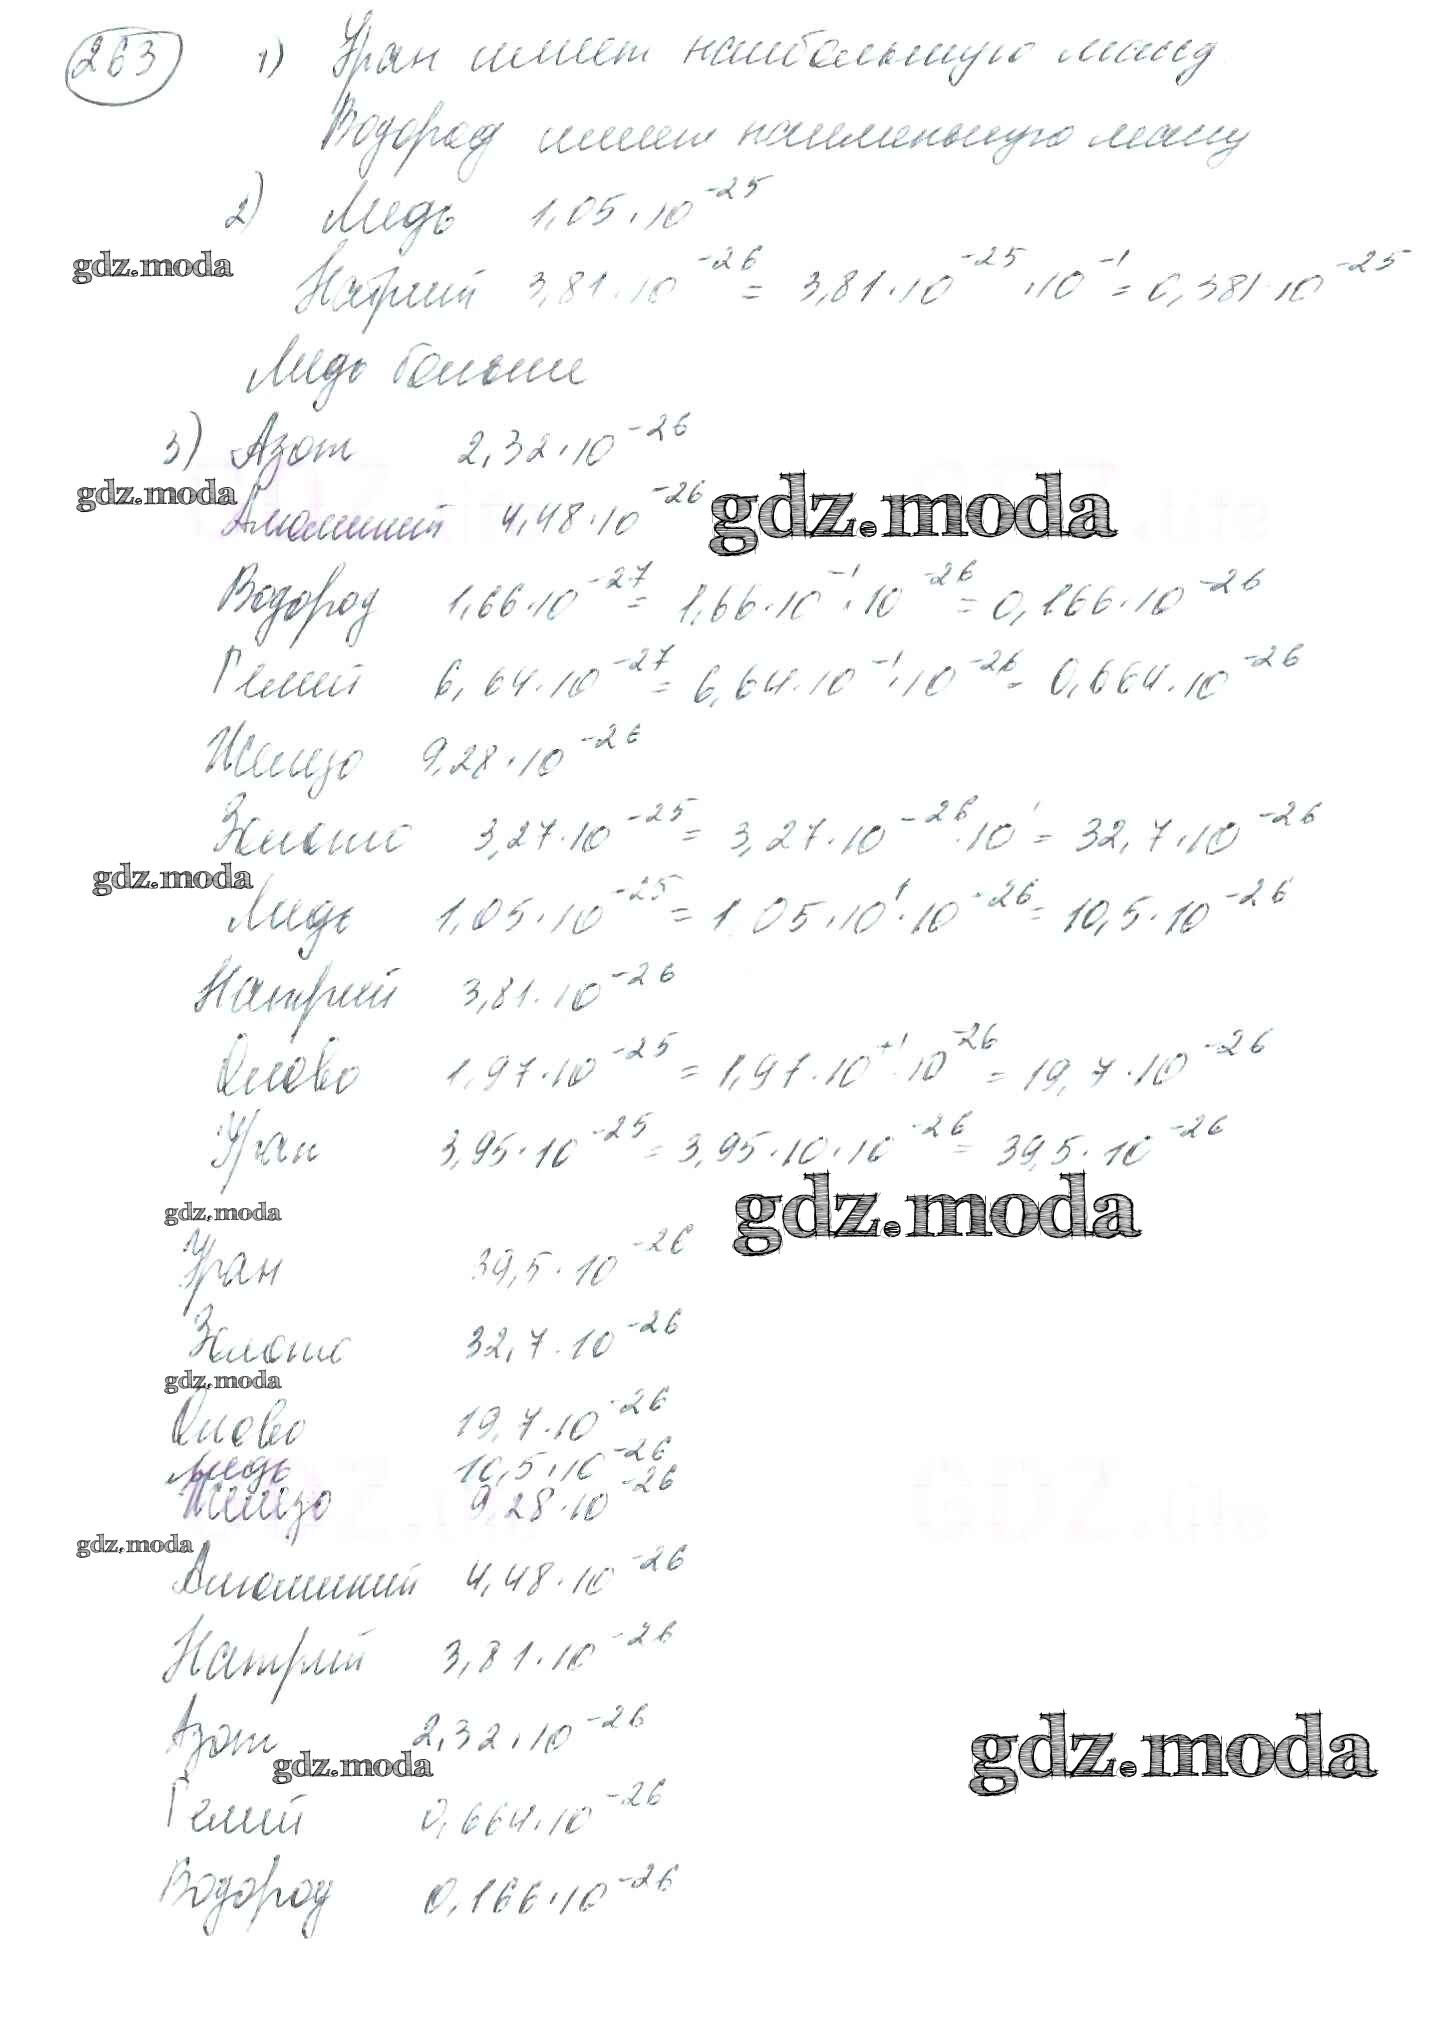 263 1) Уран имеет наибольшую массу
Водород имеет наименьшую массу
2) Медь 1,05·10⁻²⁵
gdz.moda
Натрий 3,81·10⁻²⁶ = 3,81·10⁻²⁵·10⁻¹ = 0,381·10⁻²⁵
Медь больше
3) Азот 2,32·10⁻²⁶
gdz.moda gdz.moda
Алюминий 4,48·10⁻²⁶
Водород 1,66·10⁻²⁷ = 1,66·10⁻¹·10⁻²⁶ = 0,166·10⁻²⁶
Гелий 6,64·10⁻²⁷ = 6,64·10⁻¹·10⁻²⁶ = 0,664·10⁻²⁶
Железо 9,28·10⁻²⁶
Золото 3,27·10⁻²⁵ = 3,27·10⁻²⁶·10¹ = 32,7·10⁻²⁶
gdz.moda
Медь 1,05·10⁻²⁵ = 1,05·10¹·10⁻²⁶ = 10,5·10⁻²⁶
Натрий 3,81·10⁻²⁶
Олово 1,97·10⁻²⁵ = 1,97·10⁺¹·10⁻²⁶ = 19,7·10⁻²⁶
Уран 3,95·10⁻²⁵ = 3,95·10·10⁻²⁶ = 39,5·10⁻²⁶
gdz.moda gdz.moda
Уран 39,5·10⁻²⁶
Золото 32,7·10⁻²⁶
gdz.moda
Олово 19,7·10⁻²⁶
Медь 10,5·10⁻²⁶
Железо 9,28·10⁻²⁶
gdz.moda
Алюминий 4,48·10⁻²⁶
Натрий 3,81·10⁻²⁶
Азот 2,32·10⁻²⁶
gdz.moda gdz.moda
Гелий 0,664·10⁻²⁶
Водород 0,166·10⁻²⁶